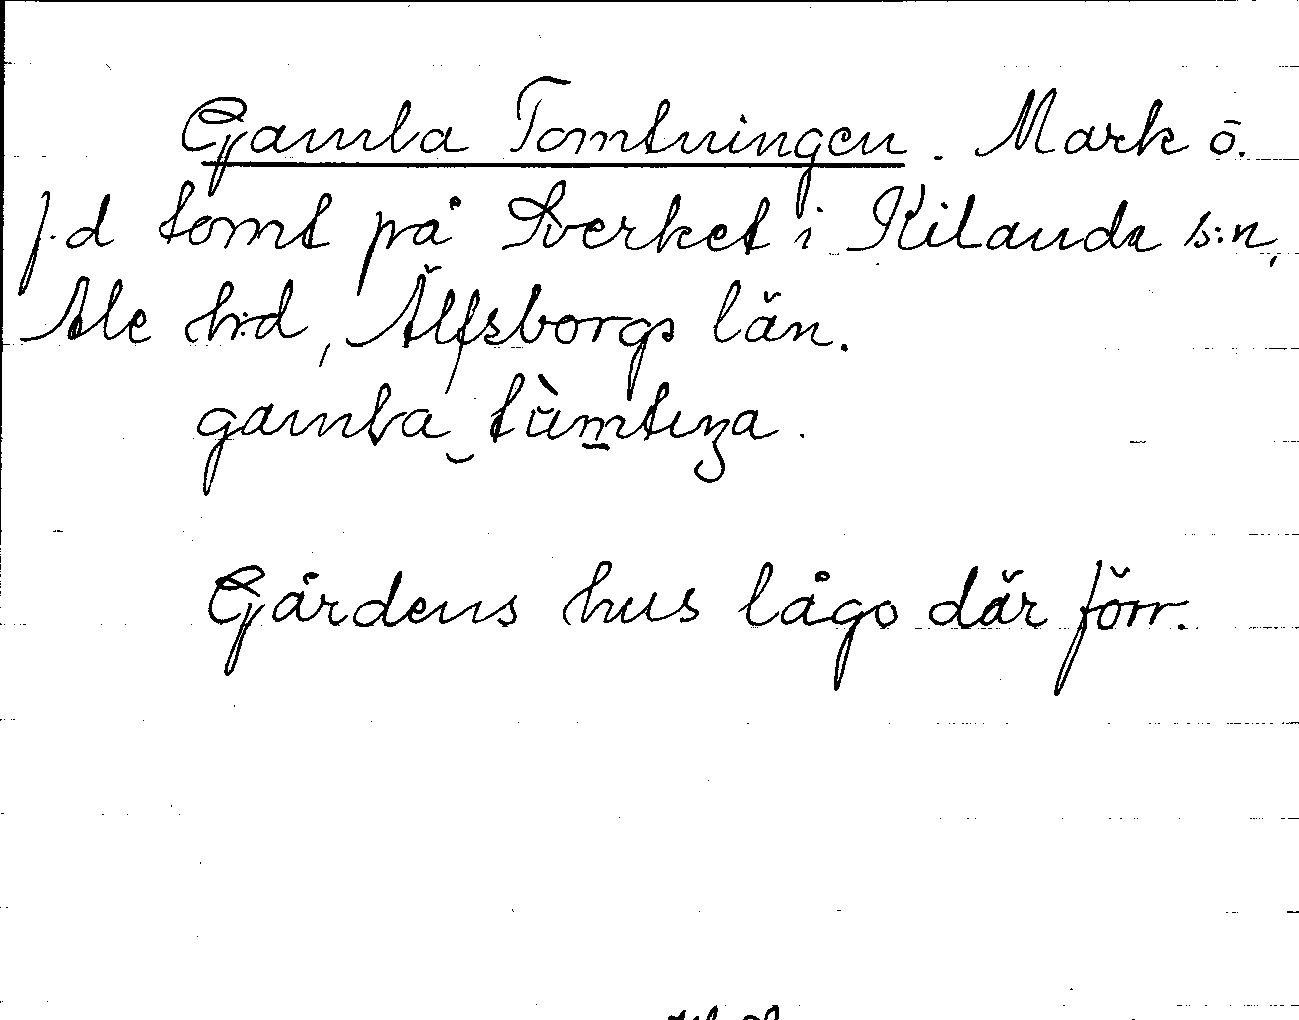 Gamla Tomtningen. Mark o.
f.d tomt på Sverket i Kilanda s:n,
Ale h:d, Älfsborgs län.
gamla
Gårdens hus lågo där förr.